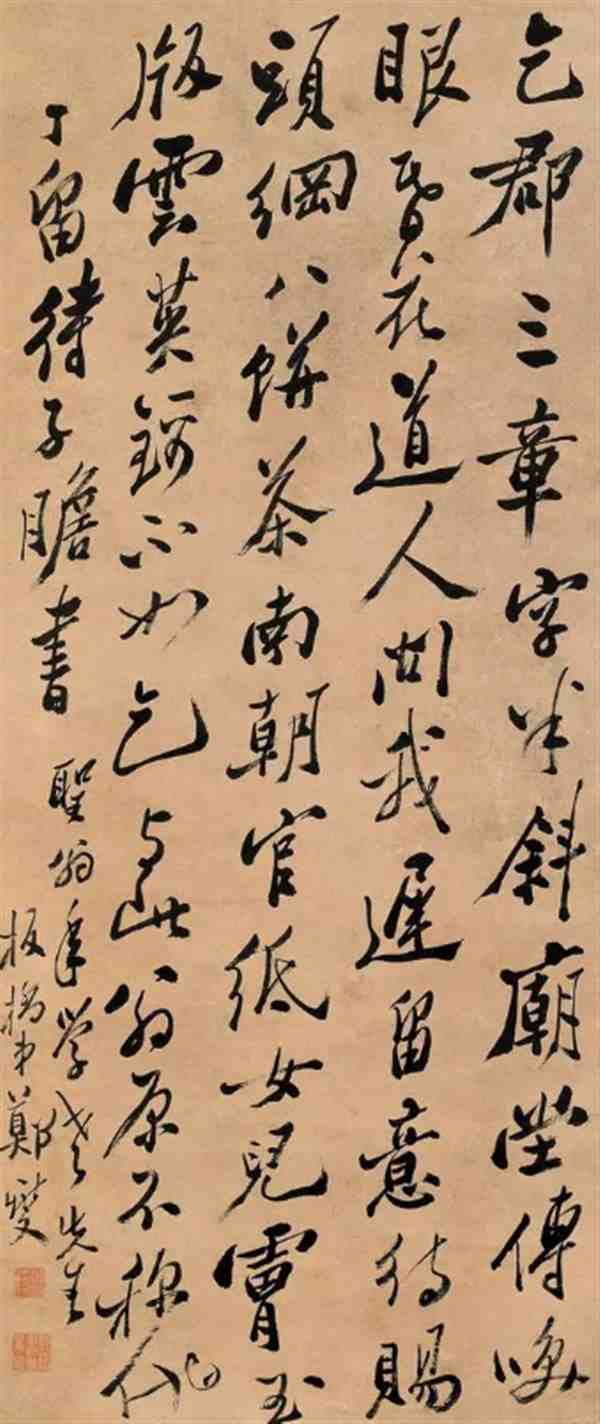 乞郡三章字半斜廟堂傳咲
眼昬花道人問我遲留意待賜
頭綱八餅茶南朝官紙女兒膚玉
版雲英不如乞與此翁原不稱
留待子瞻書
聖翁年學老先生
板橋弟鄭燮